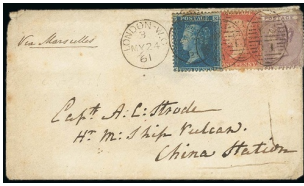 Via Marseilles
LONDON-W
3
MY 24
61
Capt. A. C. Strode
H. M. Ship Vulcan.
China Station